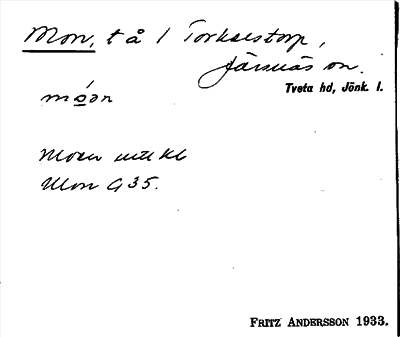 Mon, t å / Torkelstorp,
Järsnäs sn.
Tveta hd, Jönk. l.
móən
Moen utt kl
Mon G 35.
FRITZ ANDERSSON 1933.